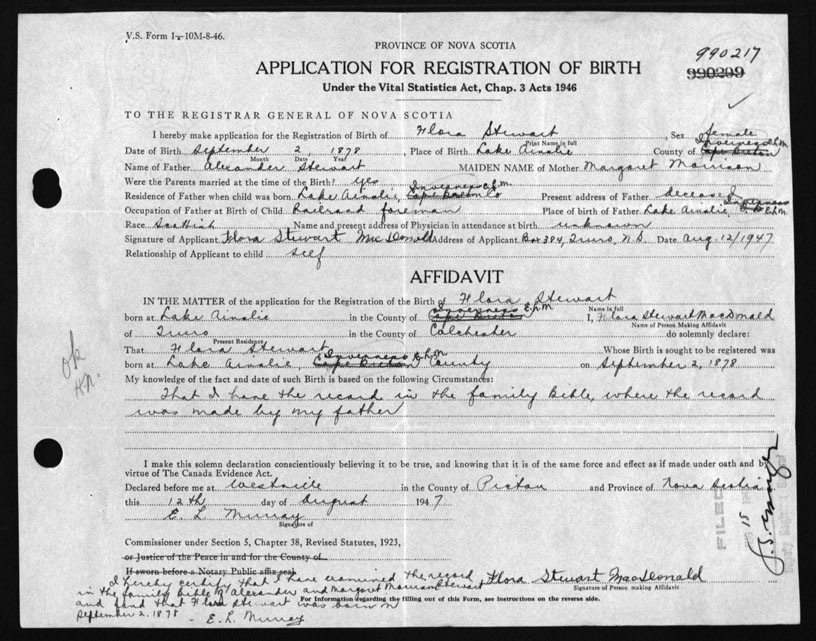 V.S. Form 1-10M-8-46.
990217
990209
PROVINCE OF NOVA SCOTIA
APPLICATION FOR REGISTRATION OF BIRTH
Under the Vital Statistics Act, Chap. 3 Acts 1946
TO THE REGISTRAR GENERAL OF NOVA SCOTIA
I hereby make application for the Registration of Birth of Flora Stewart, Sex female
Print Name in full
Inverness E.L.M.
Date of Birth September 2, 1878, Place of Birth Lake Ainslie County of Cape Breton
Month Date Year
Name of Father Alexander Stewart MAIDEN NAME of Mother Margaret Morrison
Were the Parents married at the time of the Birth? yes
Inverness E.L.M.
Residence of Father when child was born Lake Ainslie, Cape Breton Co Present address of Father deceased
Inverness
Occupation of Father at Birth of Child Railroad foreman Place of birth of Father Lake Ainslie, C.B. E.L.M.
Race Scottish Name and present address of Physician in attendance at birth unknown
Signature of Applicant Flora Stewart MacDonald Address of Applicant Box 384, Truro, N.S. Date Aug. 12/1947
Relationship of Applicant to child self
AFFIDAVIT
IN THE MATTER of the application for the Registration of the Birth of Flora Stewart
Name in full
Inverness E.L.M.
born at Lake Ainslie in the County of Cape Breton I, Flora Stewart MacDonald
Name of Person Making Affidavit
of Truro in the County of Colchester do solemnly declare:
Present Residence
That Flora Stewart Whose Birth is sought to be registered was
Inverness E.L.M.
born at Lake Ainslie, Cape Breton County on September 2, 1878
My knowledge of the fact and date of such Birth is based on the following Circumstances:
That I have the record in the family Bible, where the record
was made by my father
ok
I make this solemn declaration conscientiously believing it to be true, and knowing that it is of the same force and effect as if made under oath and by
virtue of The Canada Evidence Act.
Declared before me at Westville in the County of Pictou and Province of Nova Scotia
this 12th day of August 1947
E L Murray
Signature of
FILED
15
Commissioner under Section 5, Chapter 38, Revised Statutes, 1923,
or Justice of the Peace in and for the County of
If sworn before a Notary Public affix seal
Flora Stewart MacDonald
Signature of Person making Affidavit
I hereby certify that I have examined the record
in the family Bible of Alexander and Margaret Morrison Stewart
and find that Flora Stewart was born on
September 2, 1878
- E. L. Murray
For Information regarding the filling out of this Form, see instructions on the reverse side.